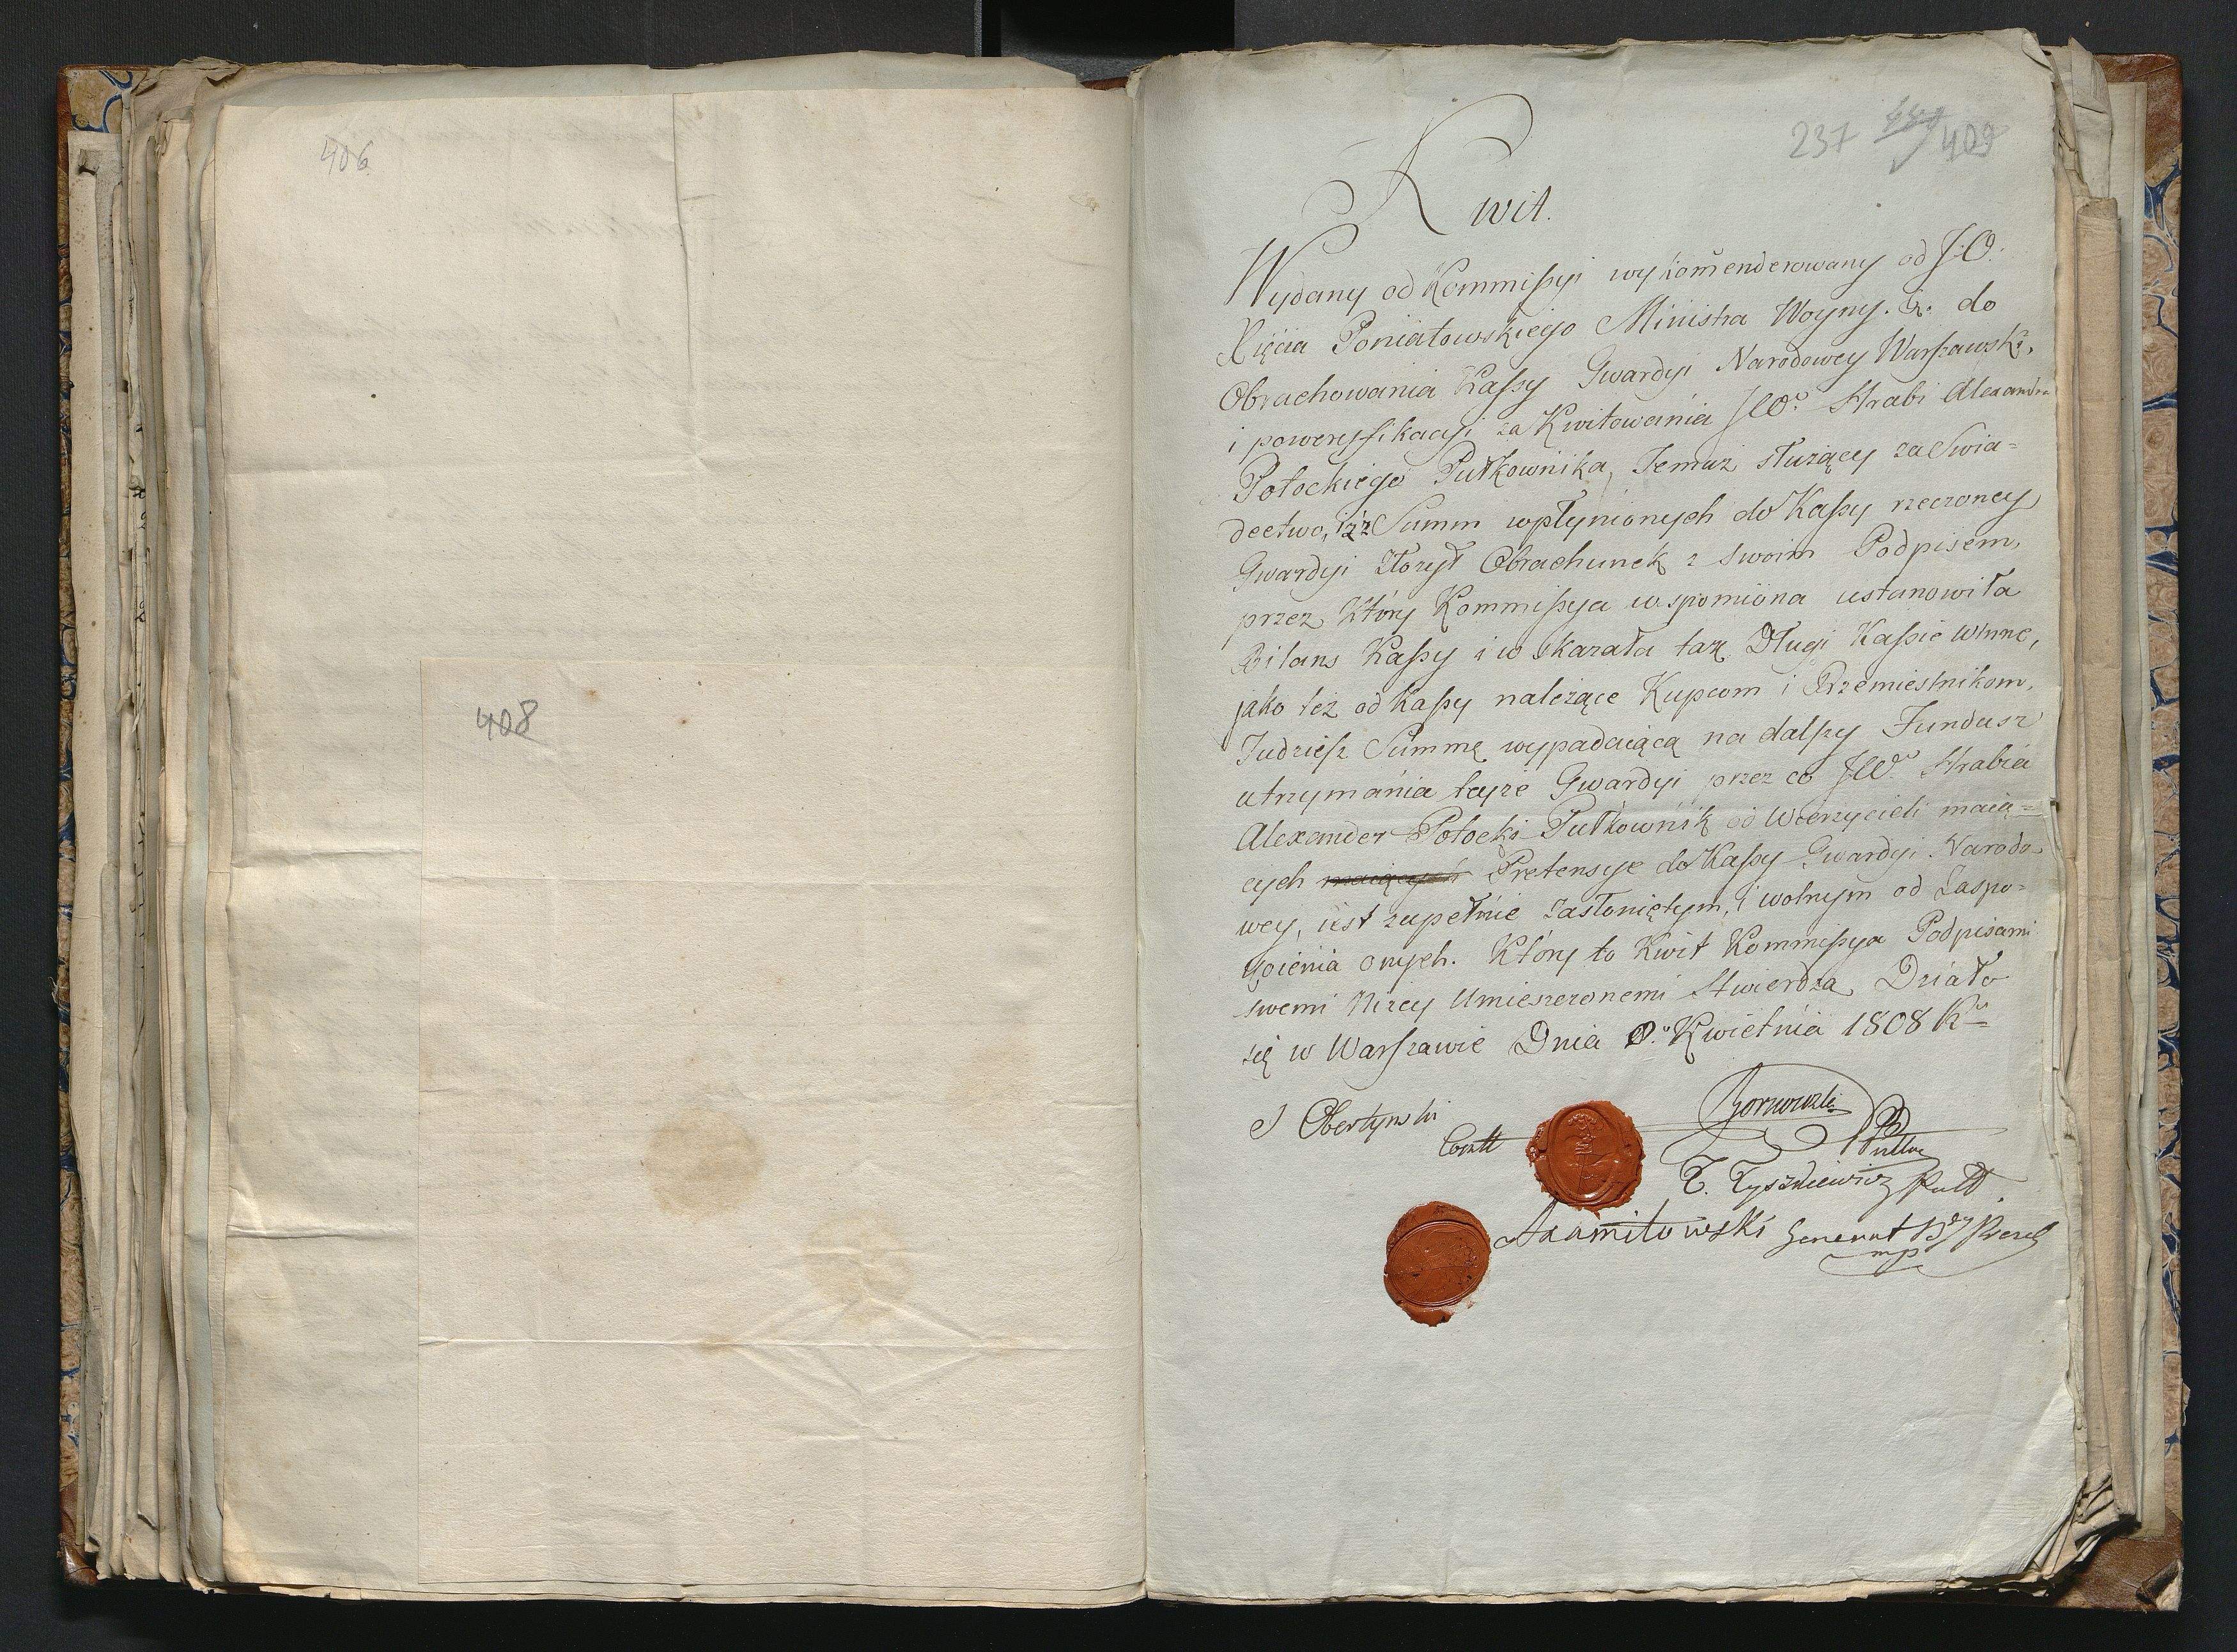 406
408
237 409
Kwit.
Wydany od Kommißyi wykom̃enderowany od J.O.
Xięcia Poniatowskiego Ministra Woyny. &. do
Obrachowania Kaßy Gwardyi Narodowey Warszawski.
i powerysfikacyi zaKwitowania JW. Hrabi Alexandra
Potockiego Pułkownika, Temuż służący za Swia=
dectwo, iż z Summ wpłynionych do Kaßy rzeczoney
Gwardyi złozył Obrachunek z swoim Podpisem,
przez Który Kommißya wspomiona ustanowiła
Bilans Kaßy i wskazała tak Długi Kaßie winne,
jako też od Kaßy należące Kupcom i Rzemieslnikom,
Tudziesz Summę wypadaiącą na dalszy Fundusz
utrzymania teyże Gwardyi przez co JW. Hrabia
Alexander Potocki Pułkownik od Wierzycieli maią=
cych maiących Pretensye do Kaßy Gwardyi Narodo
wey, iest zupełnie zasłoniętym, i wolnym od Zaspo=
goienia onych. Który to Kwit Kommißya Podpisami
swemi Niżey Umieszczonemi Stwierdza Działo
się w Warszawie Dnia Kwietnia 1808 R
J Obertynski
T. Tyszkiewicz Pułk
Axamitowski Generał Bry Prezes
mp